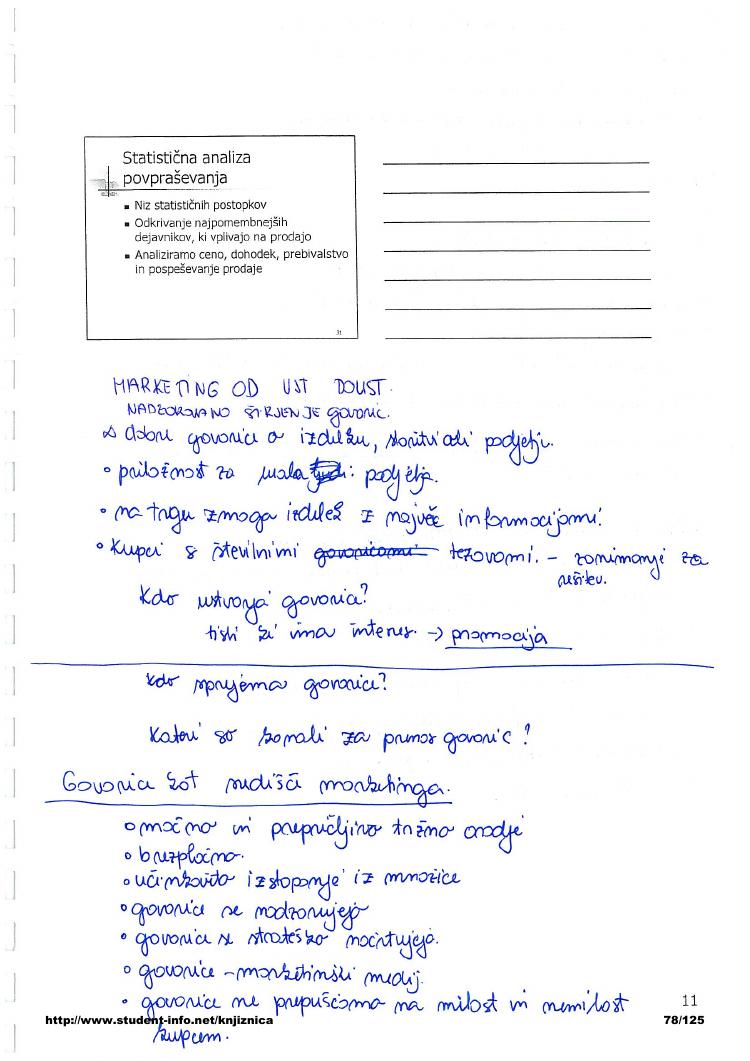 Statistična analiza
povpraševanja
▪ Niz statističnih postopkov
▪ Odkrivanje najpomembnejših
dejavnikov, ki vplivajo na prodajo
▪ Analiziramo ceno, dohodek, prebivalstvo
in pospeševanje prodaje
31
MARKETING OD UST DOUST.
NADZOROVANO ŠIRJENJE govoric.
dobre govorice o izdelku, storitvi ali podjetju.
• priložnost za mala podjetja.
• na trgu zmaga izdelek z največ informacijami!
• Kupci s številnimi govoricami težavami. – zanimanje za
rešitev.
Kdo ustvarja govorice?
tisti ki ima interes. → promocija
Kdo sprejema govorice?
Kateri so kanali za prenos govoric?
Govorice kot središče marketinga.
• močno in prepričljivo tržno orodje
• brezplačno.
• učinkovito izstopanje iz množice
• govorice se nadzorujejo
• govorice se strateško načrtujejo.
• govorice – marketinški medij.
• govorice ne prepuščamo na milost in nemilost
kupcem.
11
http://www.student-info.net/knjiznica
78/125